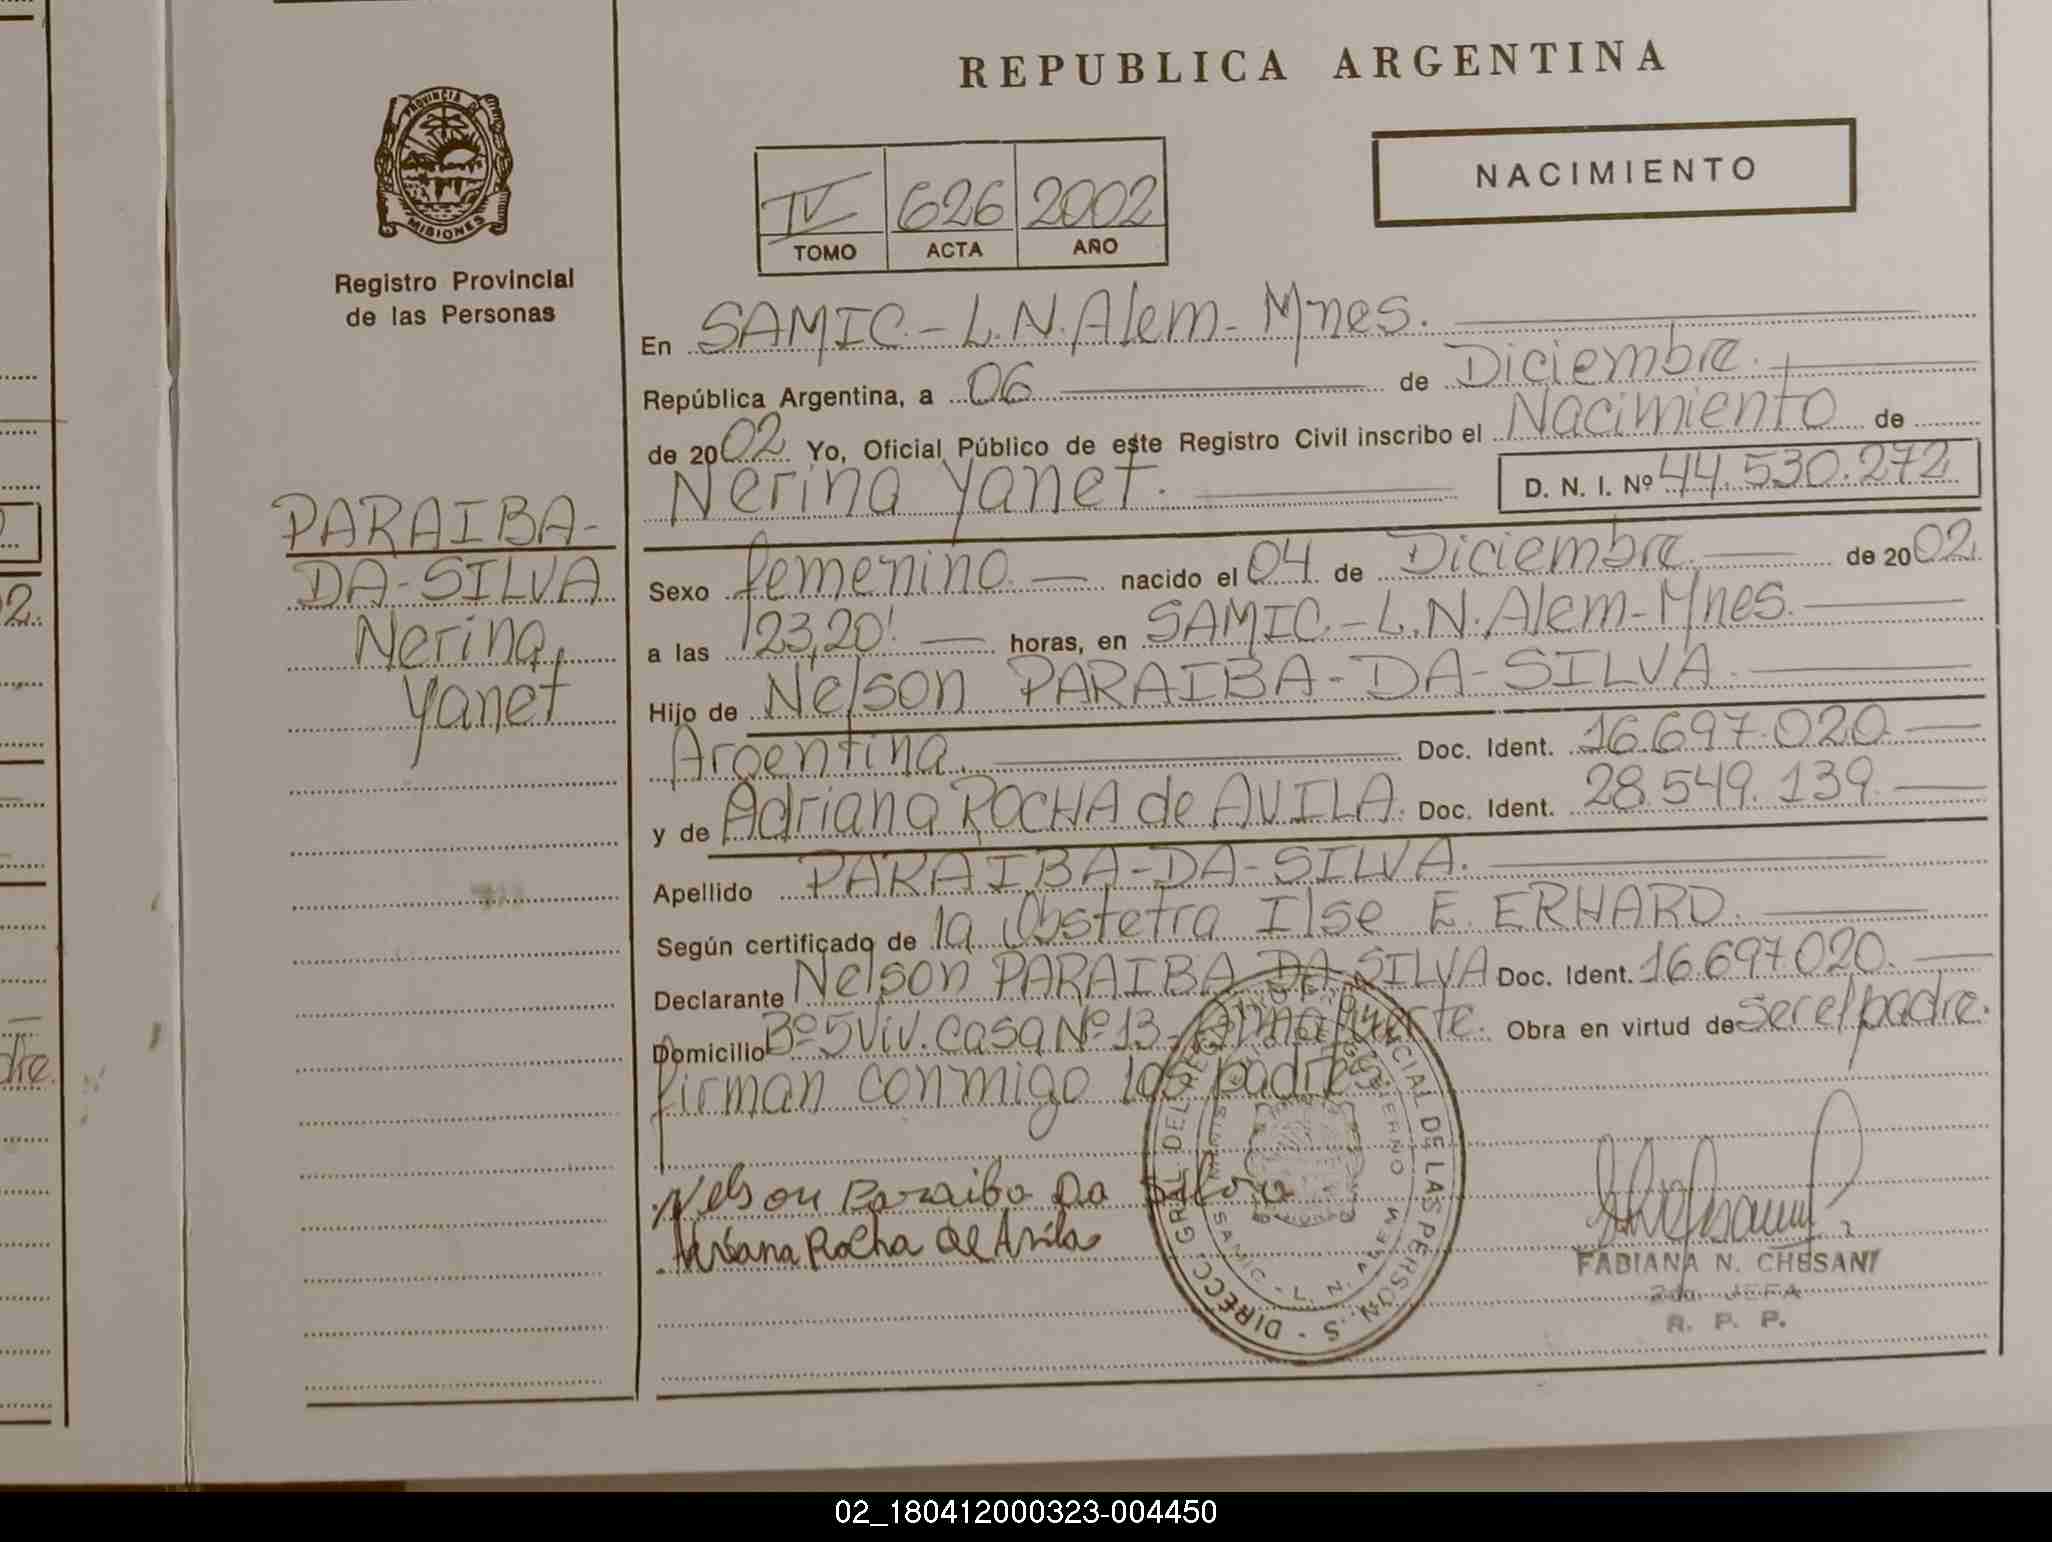 REPUBLICA ARGENTINA
NACIMIENTO
IV 626 2002
TOMO ACTA AÑO
PROVINCIA DE
MISIONES
Registro Provincial
de las Personas
PARAIBA-
DA-SILVA
Nerina
Yanet
En SAMIC.-L.N.Alem-Mnes.
República Argentina, a 06 de Diciembre.
de 2002. Yo, Oficial Público de este Registro Civil inscribo el Nacimiento de
Nerina Yanet. D. N. I. Nº 44.530.272
Sexo femenino. nacido el 04 de Diciembre. de 2002.
a las 23,20' horas, en SAMIC.-L.N.Alem-Mnes.
Hijo de Nelson PARAIBA-DA-SILVA.
Argentina. Doc. Ident. 16.697.020
y de Adriana ROCHA de AVILA. Doc. Ident. 28.549.139
Apellido PARAIBA-DA-SILVA.
Según certificado de la Obstetra Ilse E. ERHARD.
Declarante Nelson PARAIBA DA SILVA Doc. Ident. 16.697.020.
Domicilio Bº 5 Viv. casa Nº 13- Obra en virtud de ser el padre.
firman conmigo los padres.
Nelson Paraiba Da Silva
Adriana Rocha de Avila
DIRECC. GRAL. DEL REG. PROVINCIAL DE LAS PERSONAS
L. N. ALEM
FABIANA N. CHESANI
2da. JEFA
R. P. P.
02_180412000323-004450